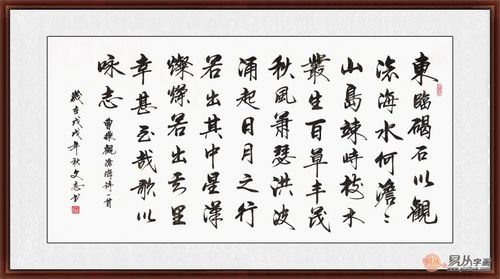 東臨碣石以觀
滄海水何澹〻
山島竦峙樹木
叢生百草丰茂
秋風蕭瑟洪波
涌起日月之行
若出其中星漢
燦爛若出其里
幸甚至哉歌以
咏志
曹操觀滄海詩一首
歲在戊戌年秋文志书
易从字画